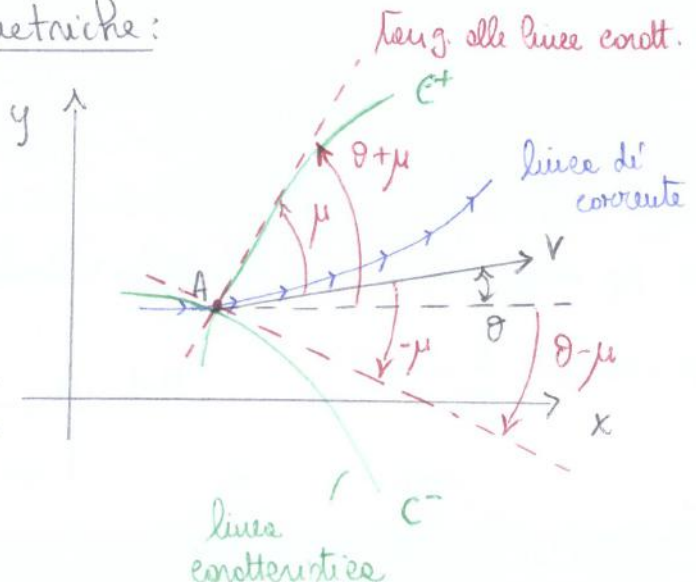 etriche:
Tang. alle linee caratt.
y
C+
θ+μ
linea di
corrente
μ
V
A
θ
-μ
θ-μ
x
C-
linea
caratteristica